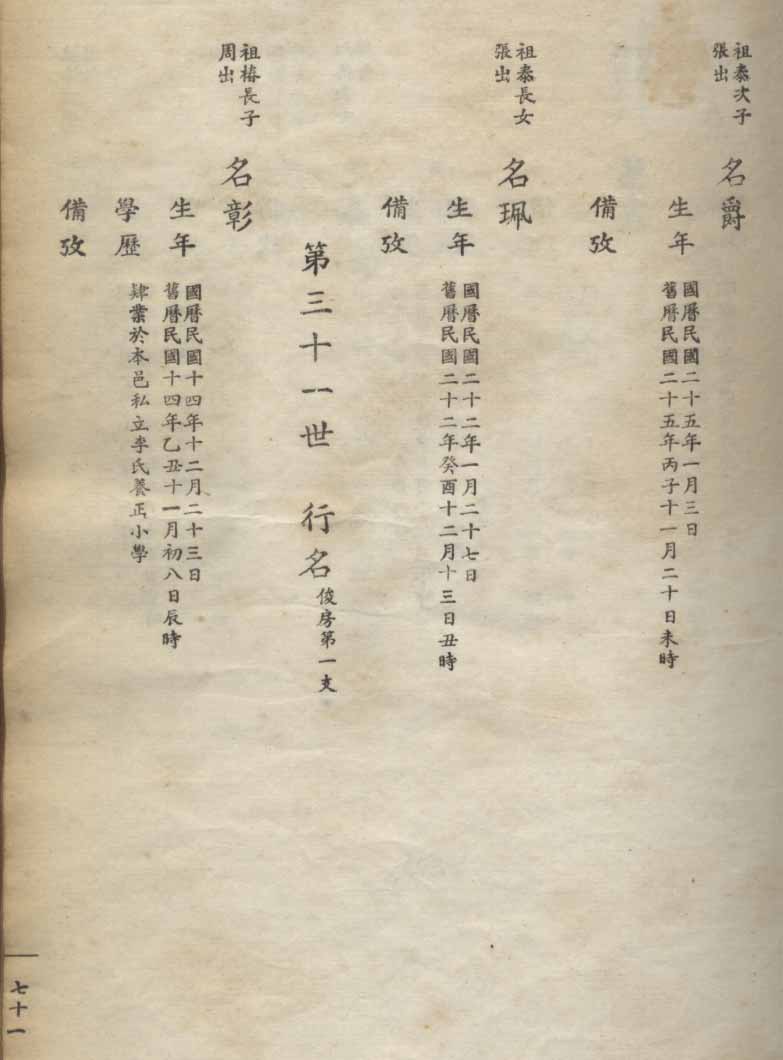 祖泰次子
張出
名爵
生年
國曆民國二十五年一月三日
舊曆民國二十五年丙子十一月二十日未時
備攷
祖泰長女
張出
名珮
生年
國曆民國二十二年一月二十七日
舊曆民國二十二年癸酉十二月十三日丑時
備攷
第三十一世 行名
俊房第一支
祖椿長子
周出
名彰
生年
國曆民國十四年十二月二十三日
舊曆民國十四年乙丑十一月初八日辰時
學歷
肄業於本邑私立李氏養正小學
備攷
七十一